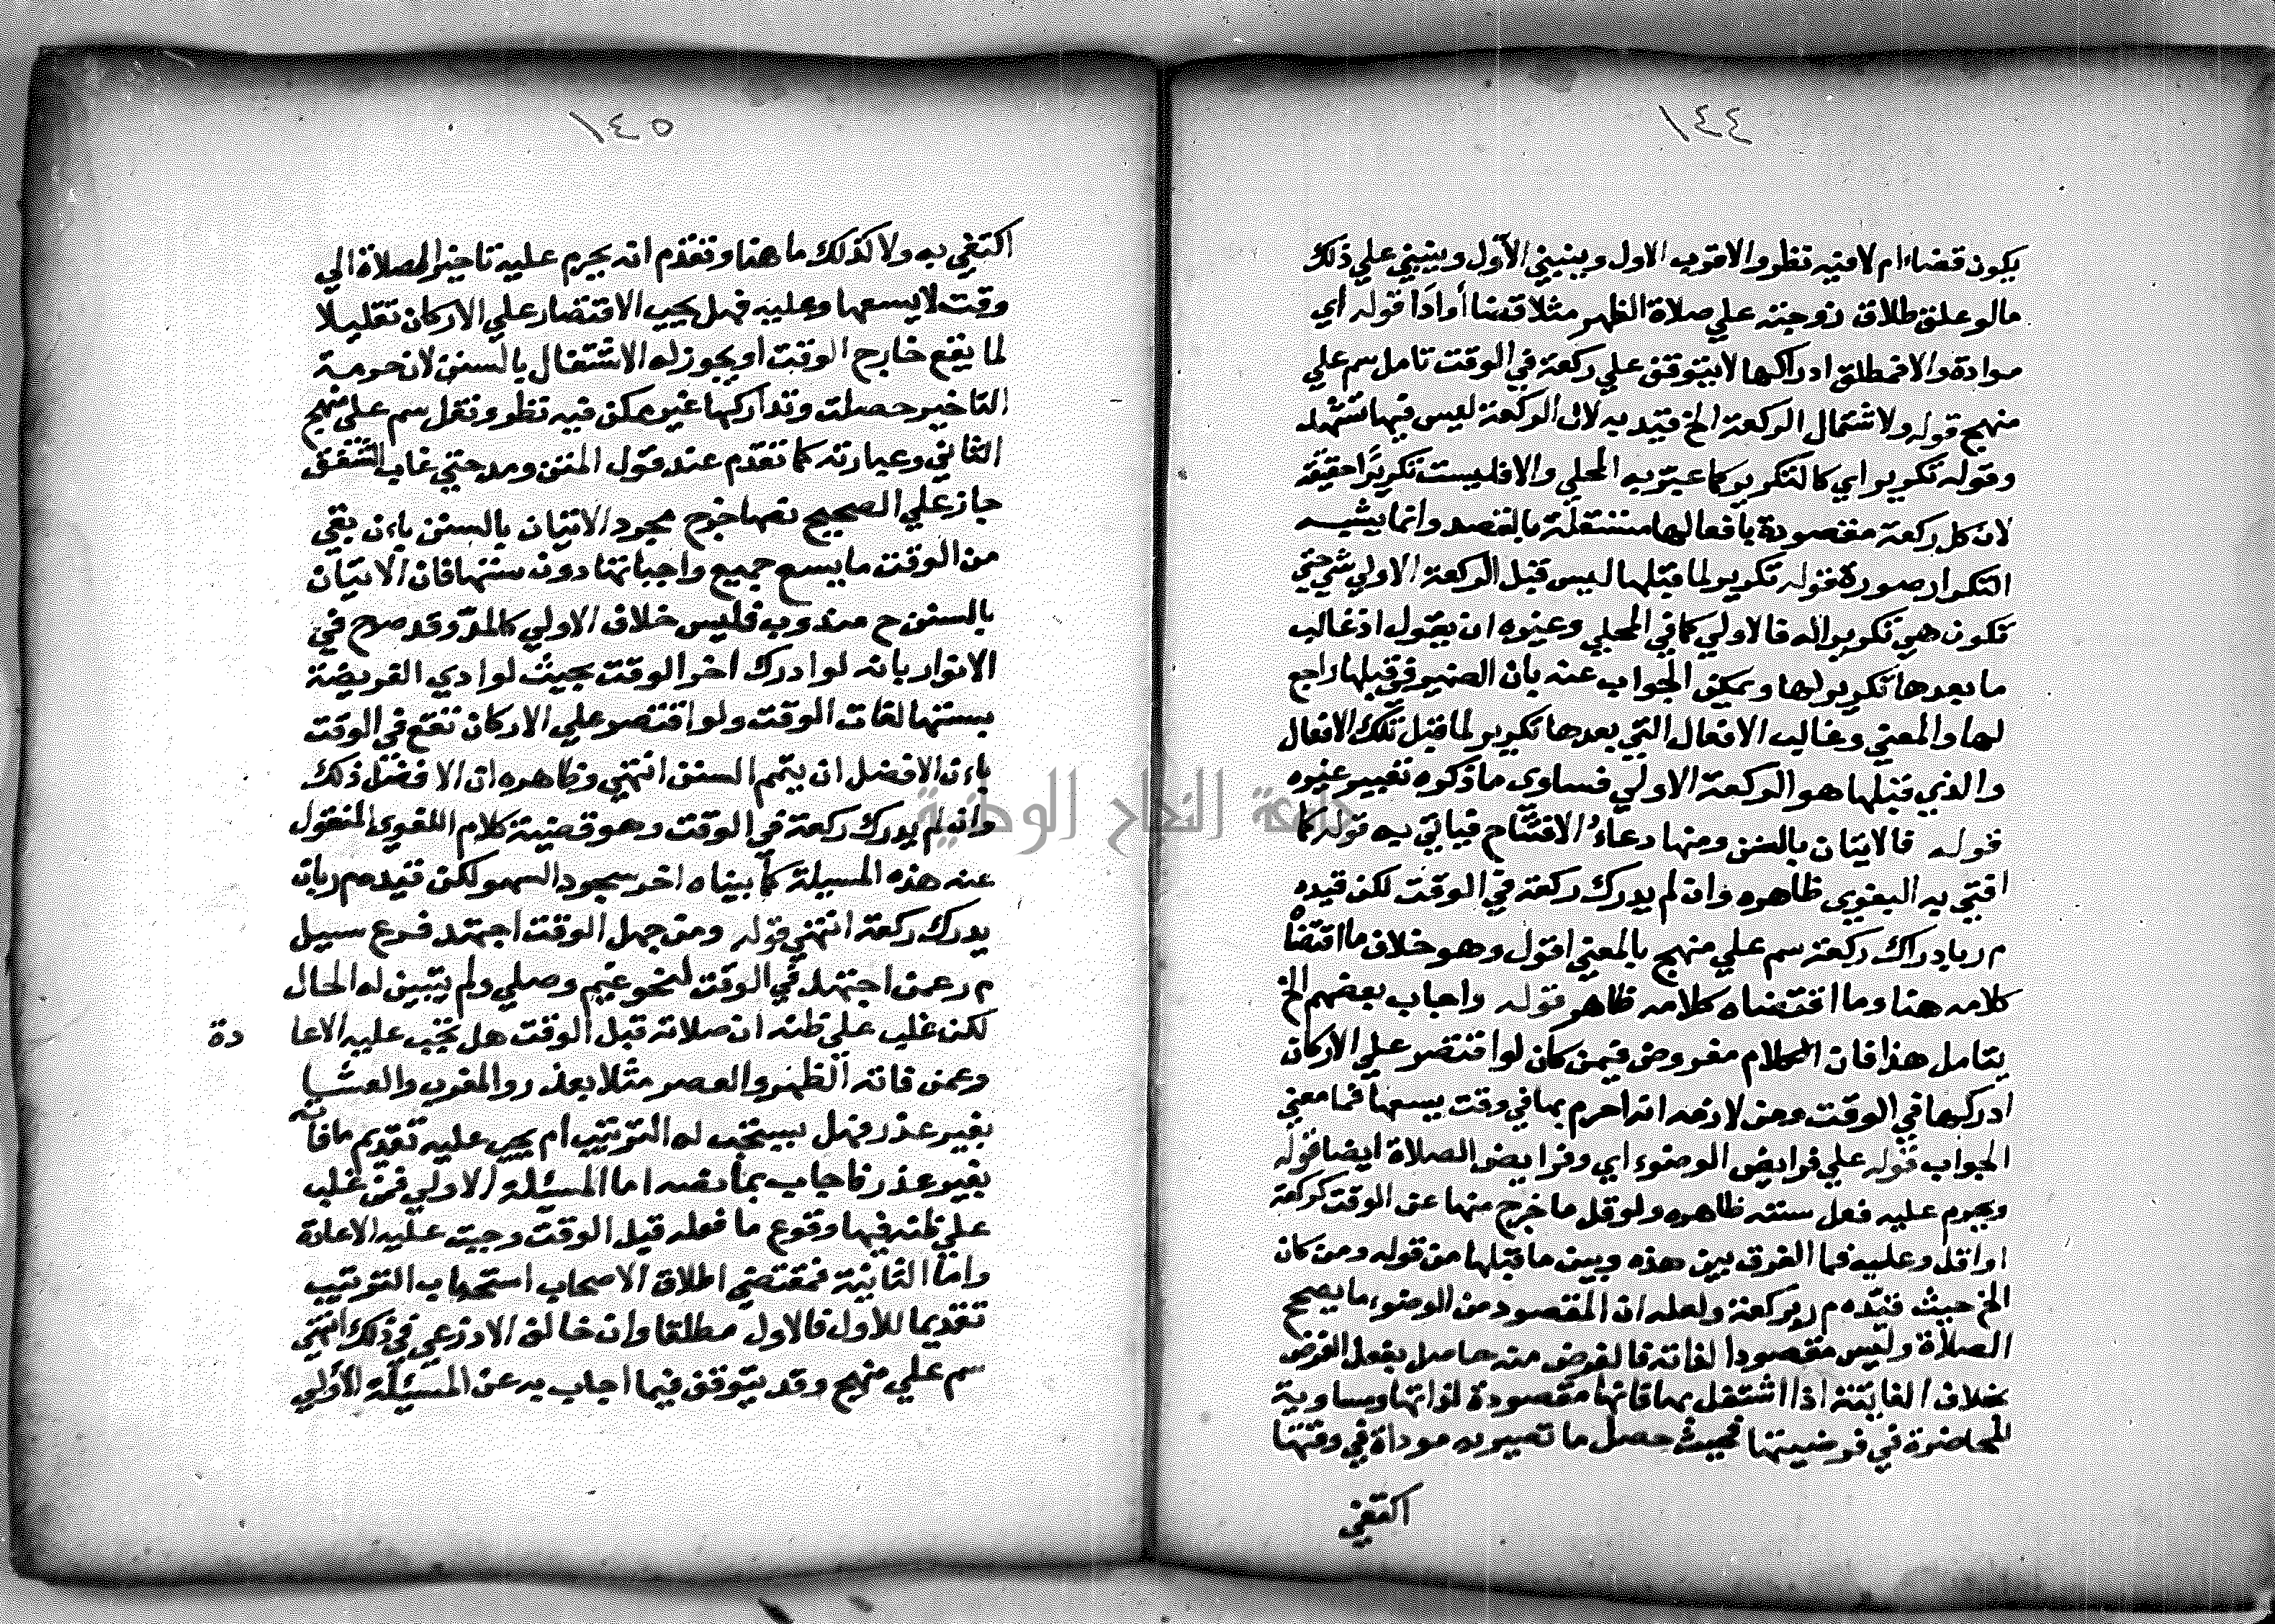 ١٤٤
يكون قضاء ام لا فيه نظر والاقرب الاول وينبني الاول وينبني علي ذلك
مالو علق طلاق زوجته علي صلاة الظهر مثلا قضا أو ادا قوله أي
موادة والا فمطلق ادراكها لا يتوقف علي ركعة في الوقت تامل سم علي
منهج قوله ولاشتمال الركعة الخ قيد به لان الركعة ليس فيها تشهد
وقوله تكرير اي كالتكرير كما عبر به المحلي والا فليست تكريرا حقيقة
لان كل ركعة مقصودة بافعالها مستقلة بالقصد وانما يشبه
التكرار صورة قوله تكرير لما قبلها ليس قبل الركعة الاولي شي حتي
تكون هي تكرير اله فالاولي كما في المحلي وغيره ان يقول اذ غالب
ما بعدها تكرير لها ويمكن الجواب عنه بان الضمير في قبلها راجع
لها والمعني وغالب الافعال التي بعدها تكرير لما قبل تلك الافعال
والذي قبلها هو الركعة الاولي فساوى ما ذكره تعبير غيره
قوله فالاتيان بالسنن ومنها دعاء الافتتاح فياتي به قوله كما
افتي به البغوى ظاهره وان لم يدرك ركعة في الوقت لكن قيده
م ر بادراك ركعة سم علي منهج بالمعني اقول وهو خلاف ما اقتضا
كلامه هنا وما اقتضاه كلامه ظاهر قوله واجاب بعضهم الخ
يتامل هذا فان الكلام مفروض فيمن كان لو اقتصر علي الاركان
ادركها في الوقت ومن لازمه انه احرم بها في وقت يسعها فما معني
الجواب قوله علي فرايض الوضوء اي وفرايض الصلاة ايضا قوله
ويحرم عليه فعل سننه ظاهره ولو قل ما خرج منها عن الوقت كركعة
او اقل وعليه فما الفرق بين هذه وبين ما قبلها من قوله ومن كان
الخ حيث قيده م ر بركعة ولعله ان المقصود من الوضوء ما يصحح
الصلاة وليس مقصودا لذاته فالغرض منه حاصل بفعل الفرض
بخلاف الفايتة اذا اشتغل بها فانها مقصودة لذاتها ومساوية
للحاضرة في فرضيتها فحيث حصل ما تصير به موداة في وقتها
اكتفي
١٤٥
اكتفي به ولا كذلك ما هنا وتقدم انه يحرم عليه تاخير الصلاة الي
وقت لا يسعها وعليه فهل يجب الاقتصار علي الاركان تقليلا
لما يقع خارج الوقت او يجوز له الاشتغال بالسنن لان حرمة
التاخير حصلت وتداركها غير ممكن فيه نظر ونقل سم علي منهج
الثاني وعبارته كما تقدم عند قول المتن ومد حتي غاب الشفق
جاز علي الصحيح نصها خرج مجرد الاتيان بالسنن باءن بقي
من الوقت ما يسع جميع واجباتها دون سننها فان الاتيان
بالسنن ح مندوب فليس خلاف الاولي كالمد وقد صرح في
الانوار بانه لو ادرك اخر الوقت بحيث لو ادي الفريضة
بسننها لفات الوقت ولو اقتصر علي الاركان تقع في الوقت
باءن الافضل ان يتمم السنن انتهي وظاهره ان الا فضل ذلك
وان لم يدرك ركعة في الوقت وهو قضية كلام اللغوي المنقول
عنه هذه المسيلة كما بيناه اخر سجود السهو لكن قيد م ر بان
يدرك ركعة انتهي قوله ومن جهل الوقت اجتهد فرع سيل
م ر عمن اجتهد في الوقت لنحو غيم وصلي ولم يتبين له الحال
لكن غلب علي ظنه ان صلاته قبل الوقت هل تجب عليه الاعا دة
وعمن فاته الظهر والعصر مثلا بعذر والمغرب والعشا
بغير عذر فهل يستحب له الترتيب ام يجب عليه تقديم مافاته
بغير عذر فاجاب بما نصه اما المسئلة الاولي فمن غلب
علي ظنه فيها وقوع ما فعله قبل الوقت وجبت عليه الاعادة
واما الثانية فمقتضي اطلاق الاصحاب استحباب الترتيب
تقديما للاول فالاول مطلقا وان خالف الاذرعي في ذلك انتهي
سم علي منهج وقد يتوقف فيما اجاب به عن المسئلة الأولي
جامعة النجاح الوطنية